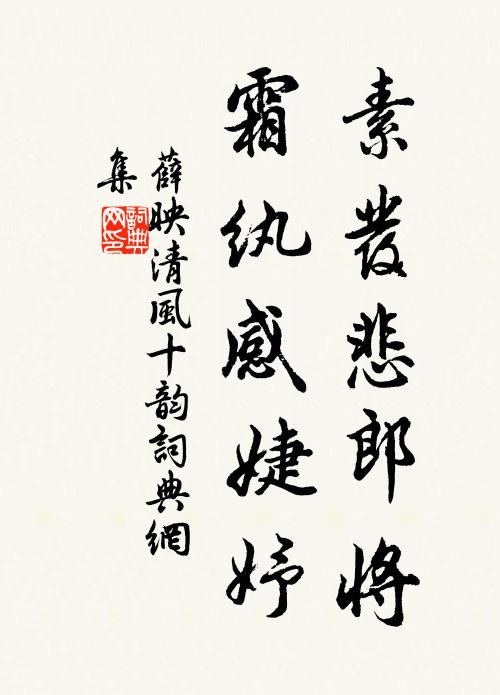 素發悲郎將
霜紈感婕妤
薛映清風十韵詞典網
集
詞典
网印